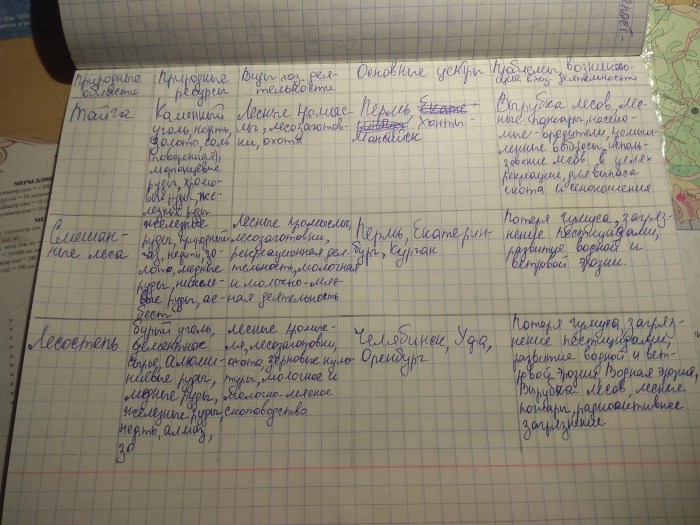 Природные области
Природные ресурсы
Виды хоз. дея-
тельности
Основные центры
Проблемы, возникаю-
щие в хоз. деятельности
Тайга
Каменный
уголь, нефть,
золото, соль
(поваренная),
марганцевые
руды, хромо-
вые руды, же-
лезные руды
Лесные промыс-
лы, лесозаготов-
ки, охота
Пермь, Екате-
Ханты-
Мансийск
Вырубка лесов, лес-
ные пожары, насеко-
мые-вредители, промыш-
ленные выбросы, исполь-
зование лесов в целях
рекреации, для выпаса
скота и сенокошения.
Смешан-
ные леса
железные
руды, природный
газ, нефть, зо-
лото, медные
руды, никеле-
вые руды, ас-
бест
Лесные промыслы,
лесозаготовки,
рекреационная дея-
тельность, молочная
и молочно-мяс-
ная деятельность
Пермь, Екатерин-
бург, Курган
Потеря гумуса, загряз-
нение пестицидами,
развитие водной и
ветровой эрозии.
Лесостепь
бурый уголь,
цементное
сырье, алюми-
ниевые руды,
медные руды,
железные руды,
нефть, алмаз,
зо
лесные промыс-
лы, лесозаготовки,
охота, зерновые куль-
туры, молочное и
молочно-мясное
скотоводство
Челябинск, Уфа,
Оренбург
Потеря гумуса, загряз-
нение пестицидами,
развитие водной и вет-
ровой эрозии. Водная эрозия,
Вырубка лесов, лесные
пожары, радиоактивное
загрязнение.
МЕРЫ ДЛИ